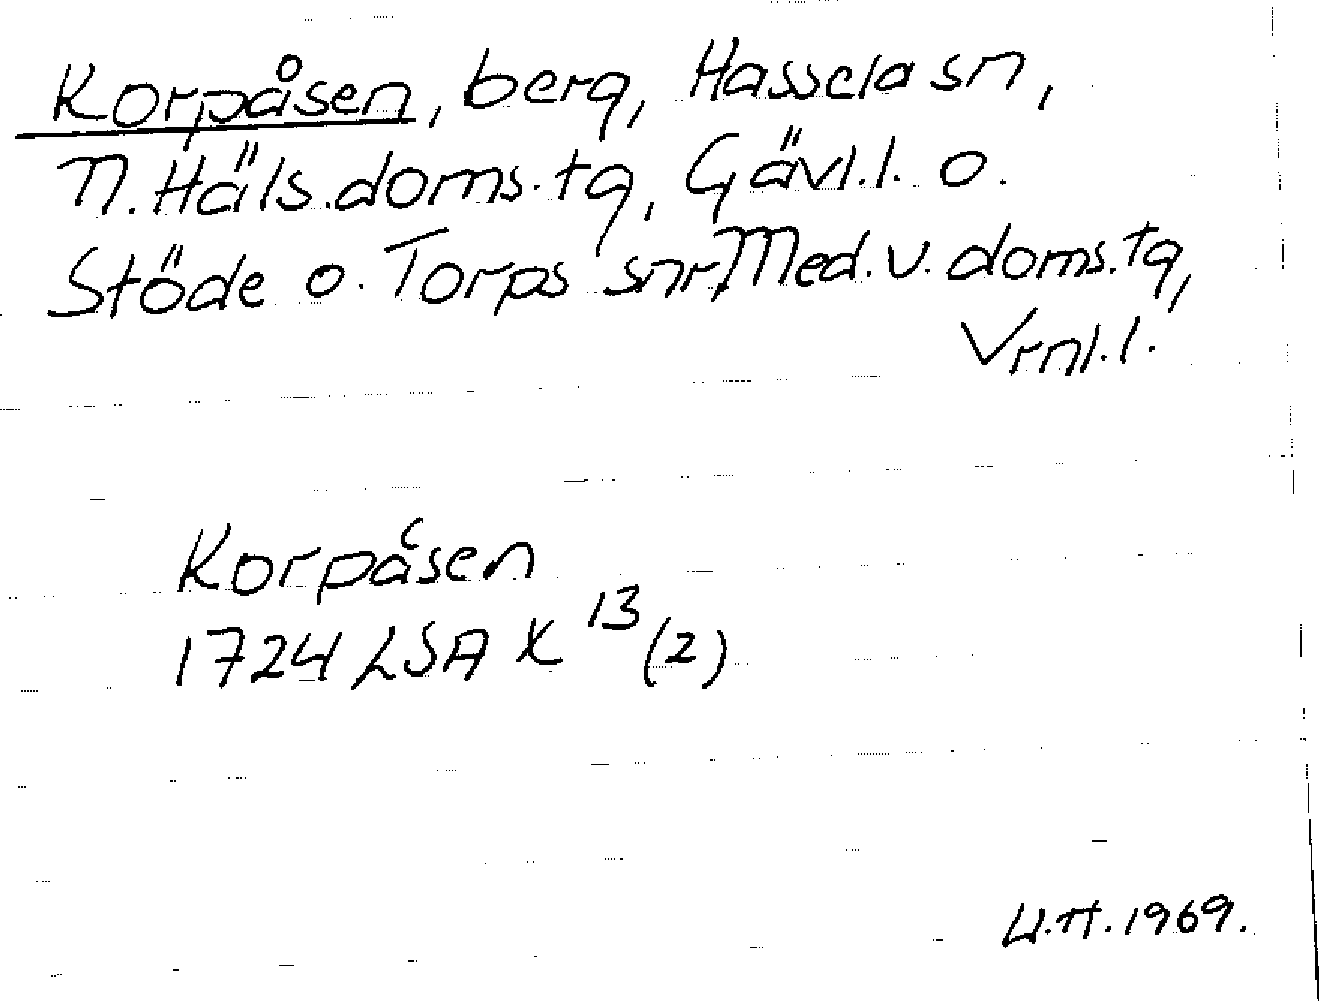 Korpåsen, berg, Hassela sn,
N. Häls. doms. tg, Gävl. l. o.
Stöde o. Torps snr, Med. v. doms. tg,
Vrnl. l.
Korpåsen
1724 LSA X 13 (2)
U.H. 1969.